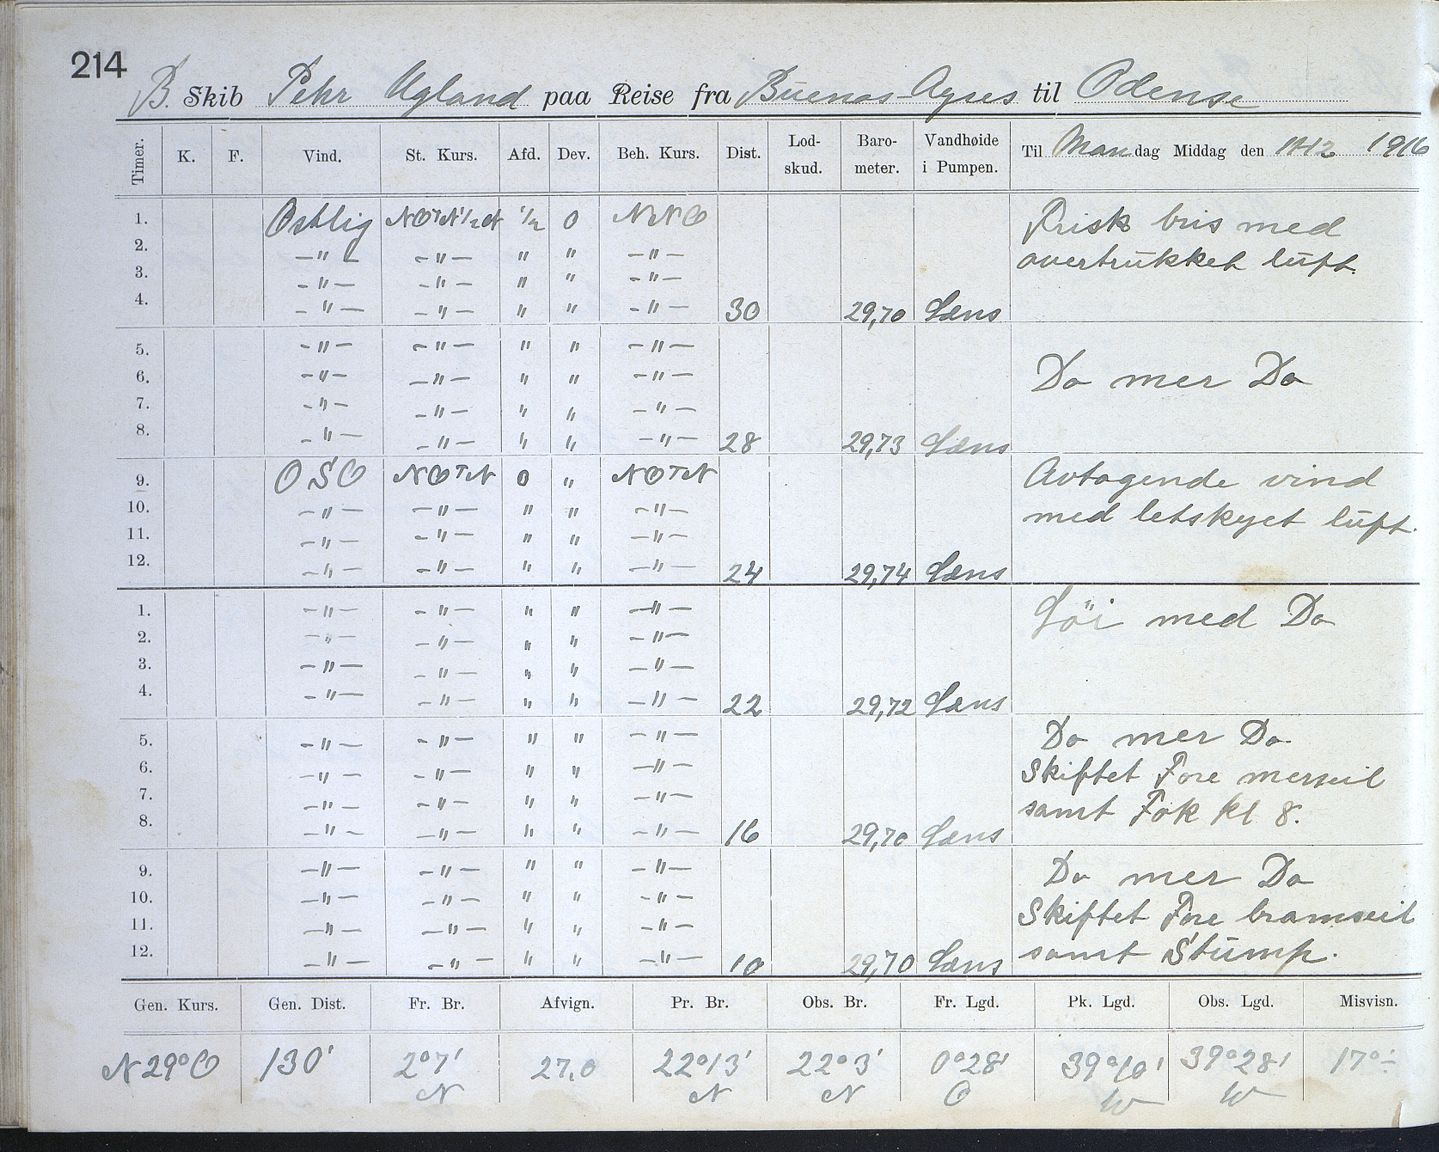 214
B. Skib Pehr Ugland paa Reise fra Buenos Ayres til Odense
Timer. K. F. Vind. St. Kurs. Afd. Dev. Beh. Kurs. Dist. Lod-skud. Baro-meter. Vandhøide i Pumpen. Til Mandag Middag den 1916
1. Ostlig NOTN½N ½ 0 NNO Frisk bris med
2. —"— —"— " " —"— overtrukket luft.
3. —"— —"— " " —"—
4. —"— —"— " " —"— 30 29,70 Læns
5. —"— —"— " " —"—
6. —"— —"— " " —"— Do mer Do
7. —"— —"— " " —"—
8. —"— —"— " " —"— 28 29,73 Læns
9. OSO NOTN 0 " NOTN Avtagende vind
10. —"— —"— " " —"— med letskyet luft.
11. —"— —"— " " —"—
12. —"— —"— " " —"— 24 29,74 Læns
1. —"— —"— " " —"— Löi med Do
2. —"— —"— " " —"—
3. —"— —"— " " —"—
4. —"— —"— " " —"— 22 29,72 Læns
5. —"— —"— " " —"— Do mer Do.
6. —"— —"— " " —"— Skiftet Fore merseil
7. —"— —"— " " —"— samt Fok kl 8.
8. —"— —"— " " —"— 16 29,70 Læns
9. —"— —"— " " —"— Do mer Do
10. —"— —"— " " —"— Skiftet Fore bramseil
11. —"— —"— " " —"— samt Stump.
12. —"— —"— " " —"— 10 29,70 Læns
Gen. Kurs. Gen. Dist. Fr. Br. Afvign. Pr. Br. Obs. Br. Fr. Lgd. Pk. Lgd. Obs. Lgd. Misvisn.
N29°O 130' 2°7' N 27,0 22°13' N 22°3' N 0°28' O 39°10' W 39°28' W 17°÷